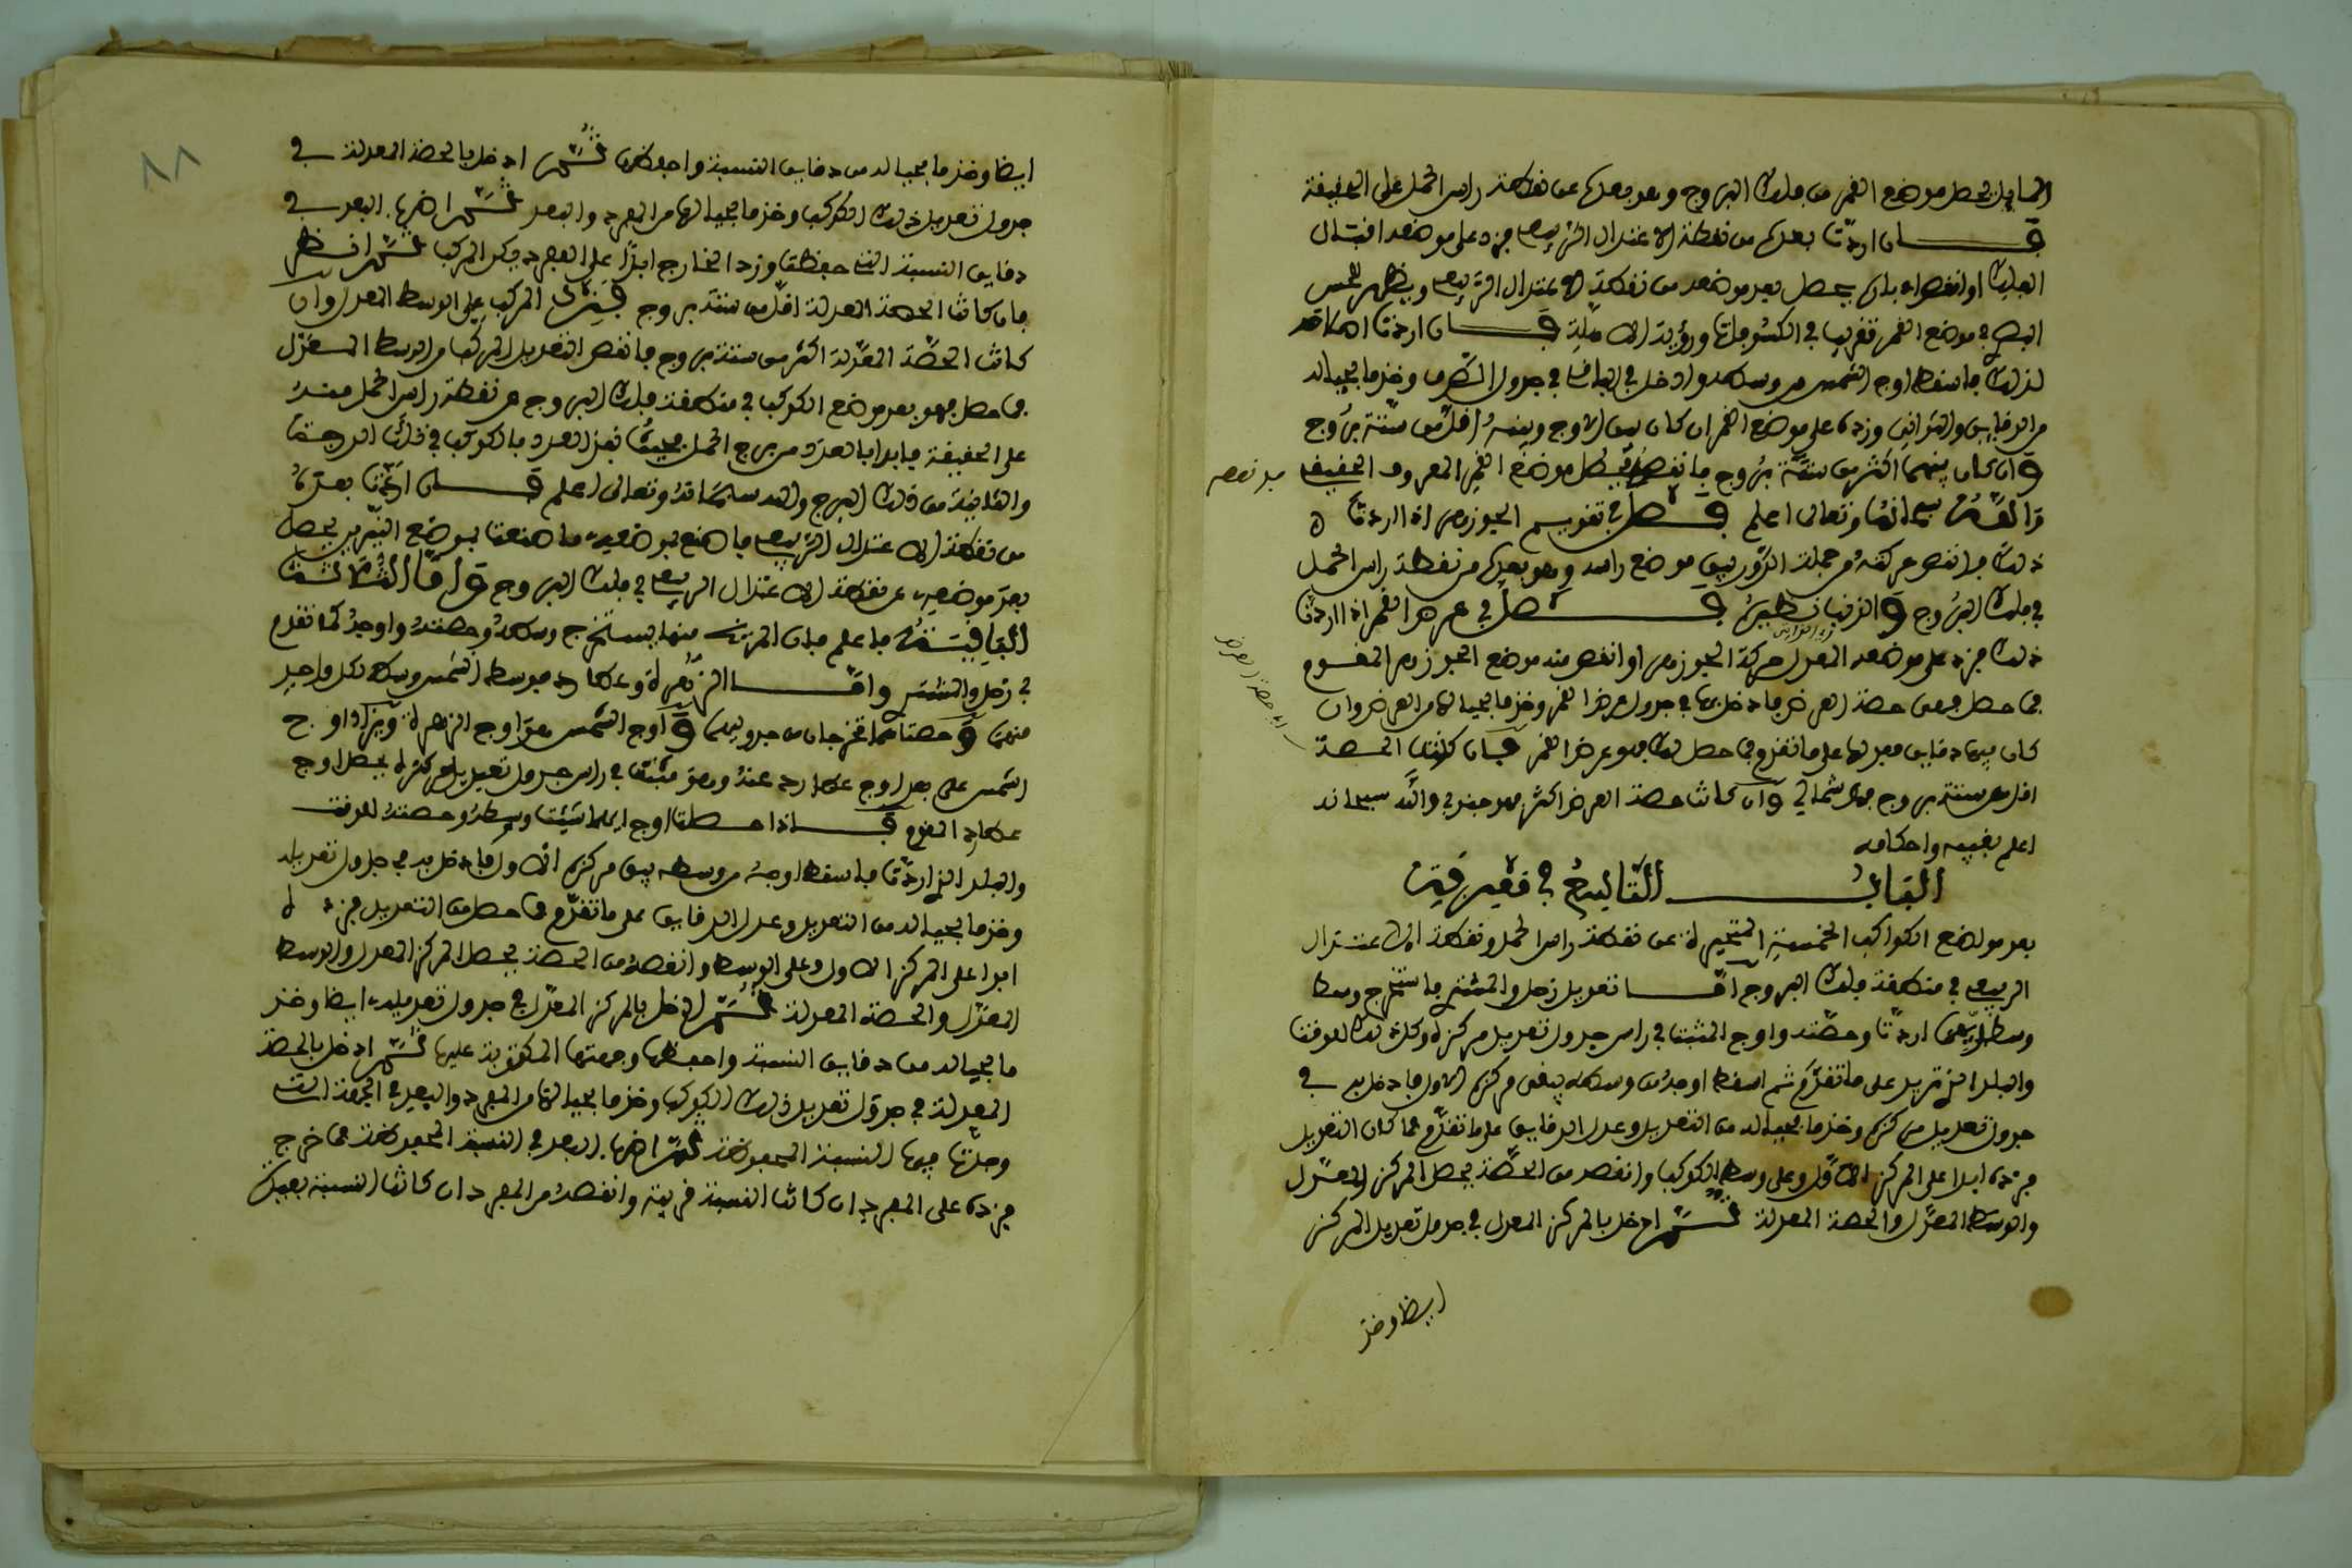 المايل يحصل موضع القمر من فلك البروج وهو بعده عن نقطة راس الحمل على الحقيقة
فان اردت بعده من نقطة الاعتدال الربيعي فزد على موضعه اقبال
الفلك او انقص ادباره يحصل بعد موضعه من نقطة الاعتدال الربيعي ويظهر للحس
في موضع القمر تقريبا في الكسوفات ورؤية الاهلة فان اردت
لذلك فاسقط اوج الشمس من وسطه وادخل بالباقي في جدول وخذ ما بحياله
من الدقايق والثواني وزده على موضع القمر ان كان بين الاوج وبينه اقل من ستة بروج
وان كان بينهما اكثر من ستة بروج فانقصه يحصل موضع القمر الحقيقي
والله سبحانه وتعالى اعلم فصل في تقويم الجوزهر اذا اردت
ذلك فانقص حركته من جملة الدور يبق موضع راسه وهو بعده من نقطة راس الحمل
في فلك البروج والذنب نظيره فصل في عرض القمر اذا اردت
ذلك فزد على موضعه المعدل حركة الجوزهر او انقص منه موضع الجوزهر المقوم
فما حصل فهي حصة العرض فادخل بها في جدول عرض القمر وخذ ما بحيالها من العرض وان
كان فيها دقايق فعدلها على ما تقدم فما حصل لك فهو عرض القمر فان كانت الحصة
اقل من ستة بروج فهو شمالي وان كانت حصة العرض اكثر فهو جنوبي والله سبحانه
اعلم بغيبه واحكامه
الباب الثالث في معرفة
بعد مواضع الكواكب الخمسة المتحيرة عن نقطة راس الحمل ونقطة الاعتدال
الربيعي في منطقة فلك البروج اما تعديل زحل والمشتري فاستخرج وسط
وسط ايهما اردت وحصته واوج المثبت في راس جدول تعديل مركزه وكل ذلك للوقت
والبلد الذي تريد على ما تقدم ثم اسقط اوجه من وسطه يبقى مركزه الاول فادخل به في
جدول تعديل مركزه وخذ ما بحياله من التعديل وعدل الدقايق على ما تقدم فما كان التعديل
فزده ابدا على المركز الاول وعلى وسط الكوكب وانقصه من الحصة يحصل المركز المعدل
والوسط المعدل والحصة المعدلة ثم ادخل بالمركز المعدل في جدول تعديل المركز
ايضا وخذ
ايضا وخذ ما بحياله من دقايق النسبة واحفظها ثم ادخل بالحصة المعدلة في
جدول تعديل ذلك الكوكب وخذ ما بحيالها من المفرد والبعد ثم اضرب البعد في
دقايق النسبة التي حفظت وزد الخارج ابدا على المفرد يكن المركب ثم انظر
فان كانت الحصة المعدلة اقل من ستة بروج فزد المركب على الوسط المعدل وان
كانت الحصة المعدلة اكثر من ستة بروج فانقص التعديل المركب من الوسط المعدل
فما حصل فهو بعد موضع الكوكب في منطقة فلك البروج من نقطة راس الحمل
على الحقيقة فابدا بالعدد من برج الحمل فحيث نفذ العدد فالكوكب في تلك الدرجة
والثانية من ذلك البرج والله سبحانه وتعالى اعلم فان اردت بعده
من نقطة الاعتدال الربيعي فاصنع بموضعه ما صنعت بموضع النيرين يحصل
بعد موضعه عن نقطة الاعتدال الربيعي في فلك البروج واما الثلاثة
الباقية فاعلم فان المريخ منها يستخرج وسطه وحصته واوجه كما تقدم
في زحل والمشتري واما الزهرة وعطارد فوسط الشمس وسط لكل واحد
منهما وحصتاهما تخرجان من جدوليهما واوج الشمس هو اوج الزهرة ويزاد اوج
الشمس على بعد اوج عطارد عنه وهو مثبت في راس جدول تعديل مركزه يحصل اوج
عطارد المقوم فاذا حصلت اوج ايهما شئت ووسطه وحصته للوقت
والبلد الذي اردت فاسقط اوجه من وسطه يبق مركزه الاول فادخل به في جدول تعديله
وخذ ما بحياله من التعديل وعدل الدقايق على ما تقدم فما حصل من التعديل فزده
ابدا على المركز الاول وعلى الوسط وانقصه من الحصة يحصل المركز المعدل والوسط
المعدل والحصة المعدلة ثم ادخل بالمركز المعدل في جدول تعديله ايضا وخذ
ما بحياله من دقايق النسبة واحفظها وجهتها المكتوبة عليها ثم ادخل بالحصة
المعدلة في جدول تعديل ذلك الكوكب وخذ ما بحيالها من المفرد والبعد في الجهة التي
وجدت فيها النسبة المحفوظة ثم اضرب البعد في النسبة المحفوظة فما خرج
فزده على المفرد ان كانت النسبة قريبة وانقصه من المفرد ان كانت النسبة بعيدة
٨٨